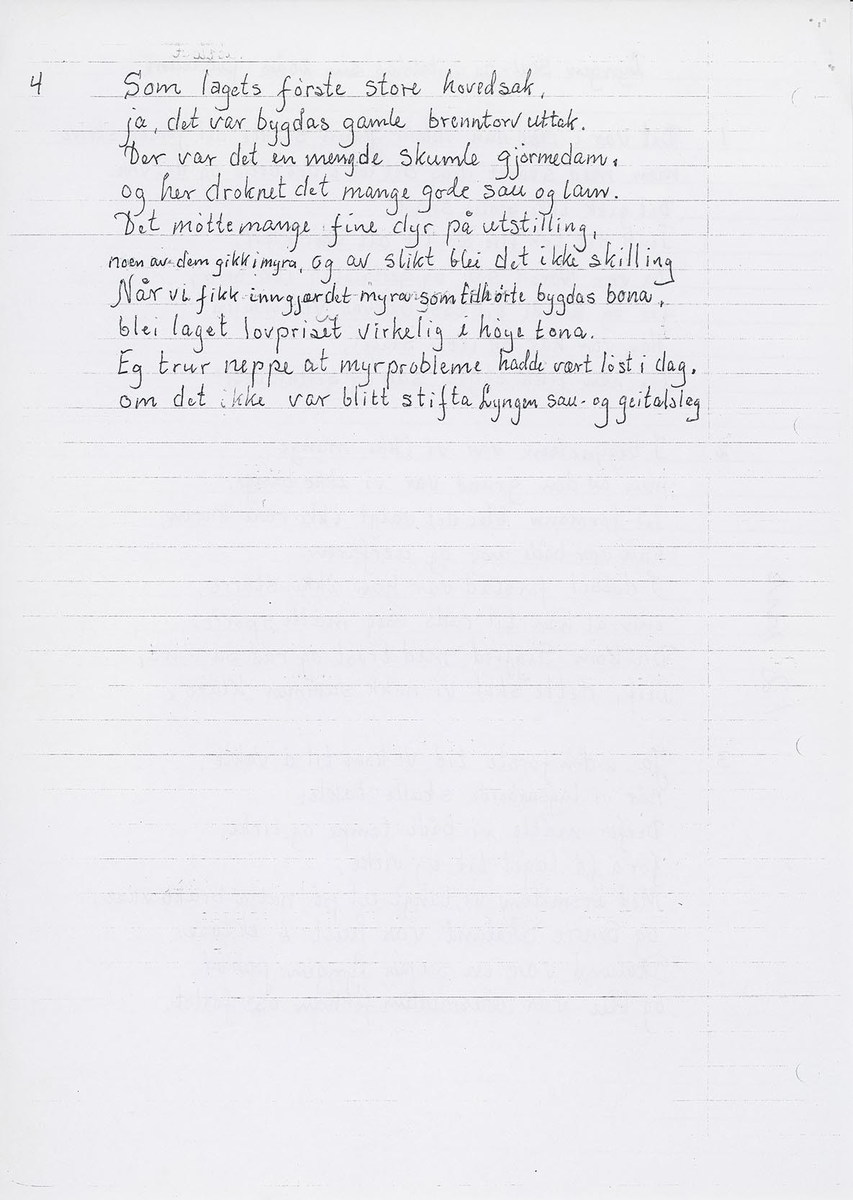 4 Som lagets første store hovedsak,
ja, det var bygdas gamle brenntorv uttak.
Der var det en mengde skumle gjørmedam,
og her droknet det mange gode sau og lam.
Det møtte mange fine dyr på utstilling,
noen av dem gikk i myra, og av slikt blei det ikke skilling
Når vi fikk inngjærdet myra som tilhørte bygdas bøna,
blei laget lovpriset virkelig i høge tona.
Eg trur neppe at myrprobleme hadde vært løst i dag,
om det ikke var blitt stifta Lyngen sau- og geitalslag